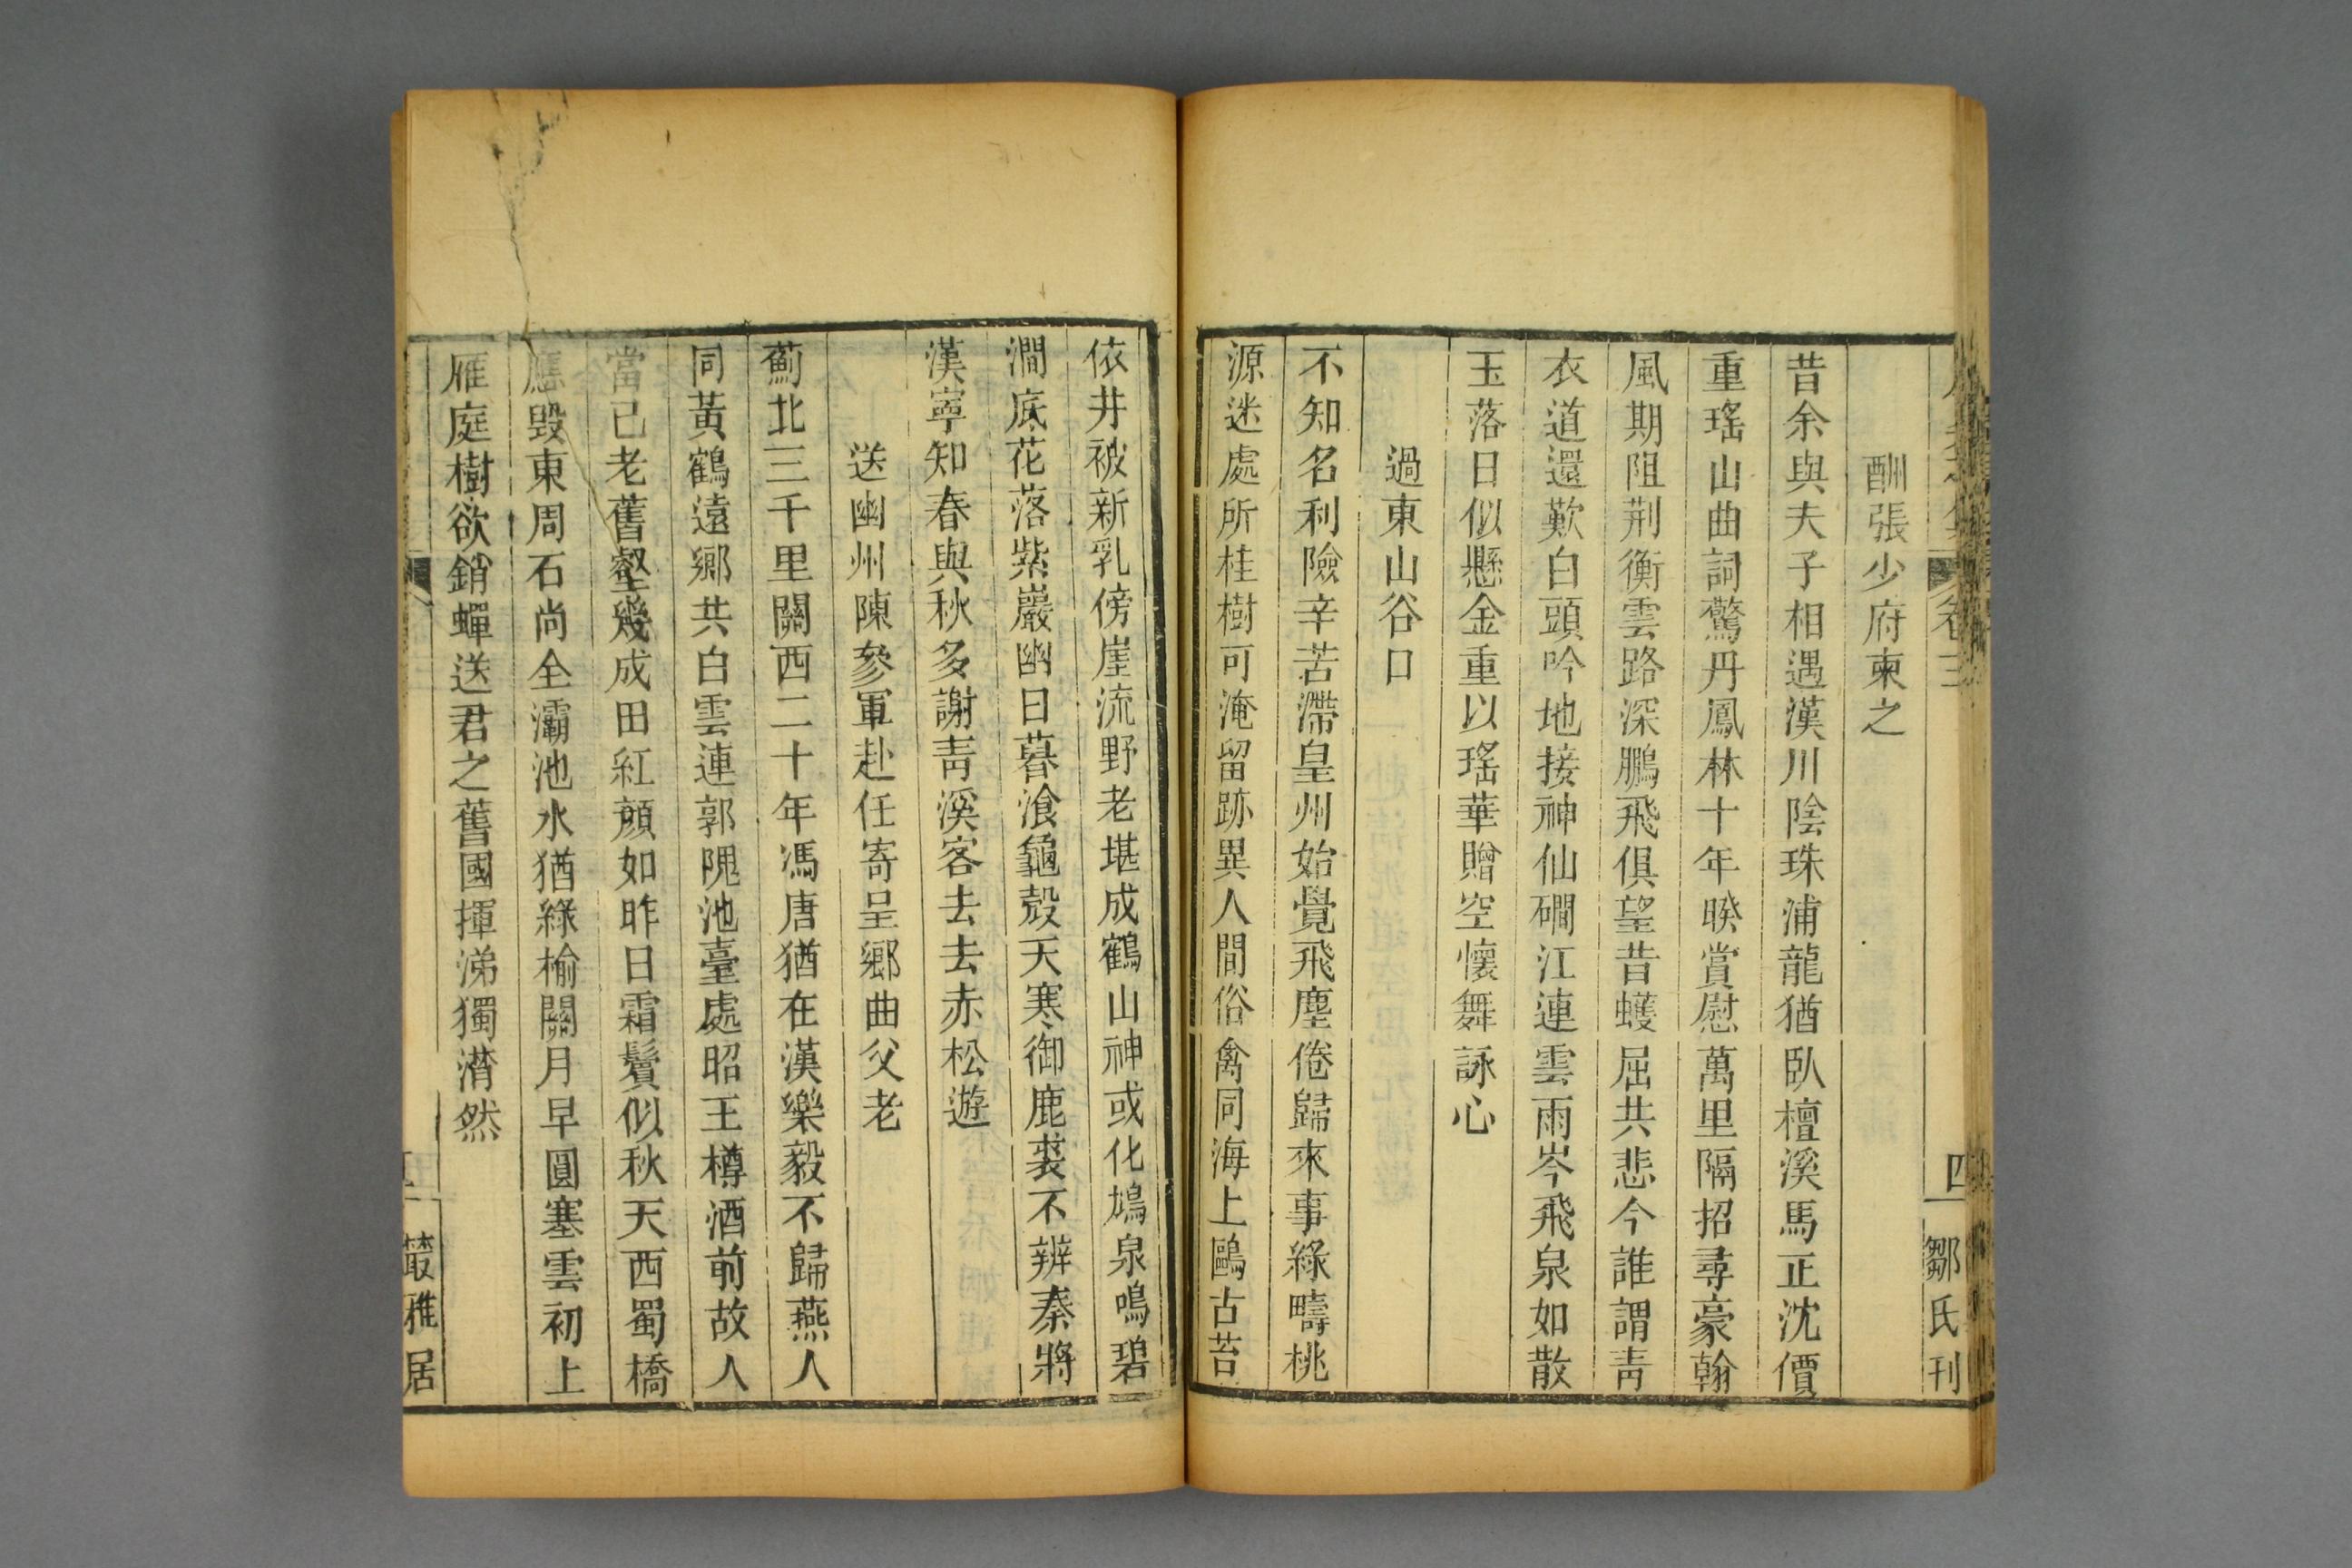 卷三
四
鄒氏刊
酬張少府柬之
昔余與夫子相遇漢川陰珠浦龍猶臥檀溪馬正沈價
重瑤山曲詞驚丹鳳林十年睽賞慰萬里隔招尋豪翰
風期阻荆衡雲路深鵬飛俱望昔蠖屈共悲今誰謂靑
衣道還歎白頭吟地接神仙磵江連雲雨岑飛泉如散
玉落日似懸金重以瑤華贈空懷舞詠心
過東山谷口
不知名利險辛苦滯皇州始覺飛塵倦歸來事綠疇桃
源迷處所桂樹可淹留跡異人間俗禽同海上鷗古苔
依井被新乳傍崖流野老堪成鶴山神或化鳩泉鳴碧
澗底花落紫巖幽日暮飡龜殼天寒御鹿裘不辨秦將
漢寧知春與秋多謝靑溪客去去赤松遊
送幽州陳參軍赴任寄呈鄉曲父老
薊北三千里關西二十年馮唐猶在漢樂毅不歸燕人
同黃鶴遠鄉共白雲連郭隗池臺處昭王樽酒前故人
當已老舊壑幾成田紅顏如昨日霜鬢似秋天西蜀橋
應毀東周石尚全灞池水猶綠榆關月早圓塞雲初上
雁庭樹欲銷蟬送君之舊國揮涕獨潸然
叢雅居